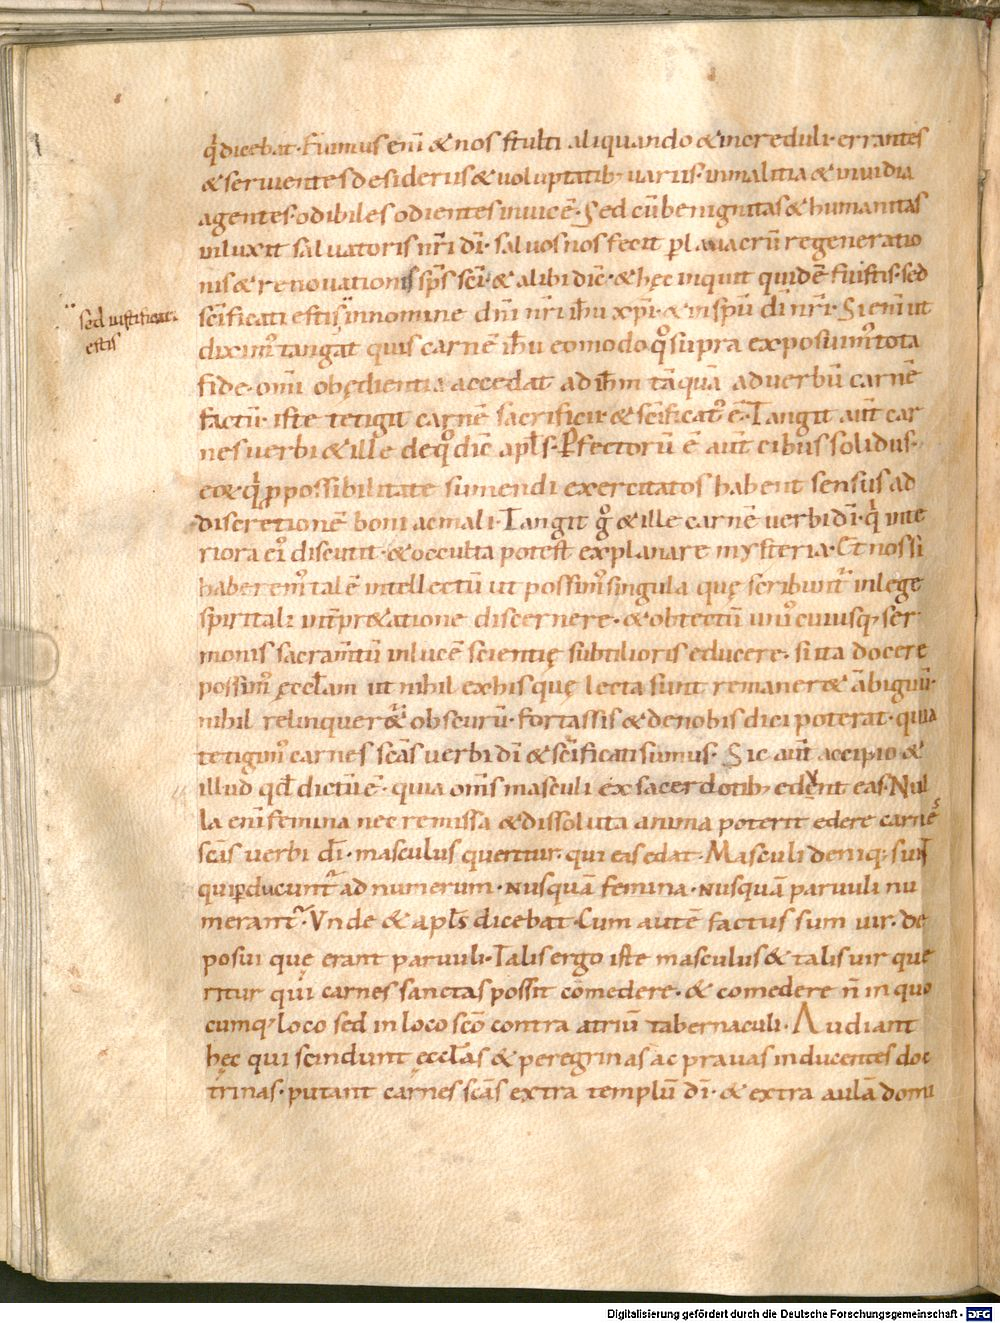 q̇dicebat· Fuimus eni̅ & nos stulti aliquando & increduli· errantes
& seruientes desideriis & uoluptatib; uariis· in malitia & inuidia
agentes· odibiles odientes inuice̅· Sed cu̅ benignitas & humanitas
inluxit saluatoris nr̅i dī· saluos nos fecit p̲ lauacru̅ regeneratio
nis & renouationis sp̅s sc̅i· & alibi dic̅· & hęc inquit quide̅ fuistis· sed
sc̅ificati estis in nomine dn̅i nr̅i ih̅u xp̅i· & in sp̅u dī nr̅i· Si eni̅ ut
sed iustificati
estis
diximꝰ tangat quis carne̅ ih̅u eo modo qͦ supra exposuimꝰ tota
fide· omi̅ obędientia accedat ad ih̅m ta̅qua̅ ad uerbu̅ carne̅
factu̅· iste tetigit carne̅ sacrificii· & sc̅ificatꝰ e̅· Tangit aut̅ car
nes uerbi & ille de qͦ dic̅ apl̅s· P̲fectoru̅ e̅ aut̅ cibus solidus·
eoꝝ q̇ p̱ possibilitate sumendi exercitatos habent sensus ad
discretione̅ boni ac mali· Tangit gͦ & ille carne̅ uerbi dī· q̇ inte
riora eiꝰ discutit· & occulta potest explanare mysteria· Et nos si
haberemꝰ tale̅ intellectu̅ ut possimꝰ singula quę scribuntᷣ in lege
spiritali int̅pr&atione discernere· & obtectu̅ uniꝰcuiusq; ser
monis sacram̅tu̅ in luce̅ scientię subtilioris educere· si ita docere
possimꝰ ęccl̅am ut nihil ex his quę lecta sunt remaner& a̅biguu̅·
nihil relinquer& obscuru̅· fortassis & de nobis dici poterat· quia
tetigimꝰ carnes sc̅as uerbi dī & sc̅ificati sumus· Sic aut̅ accipio &
illud qd̅ dictu̅ e̅· quia om̅s masculi ex sacerdotib; edent eas· Nul
la eni̅ femina nec remissa & dissoluta anima poterit edere carnes
sc̅as uerbi dī· masculus queritur· qui eas edat· Masculi deniq; sunt
qui p̲ducuntᷣ ad numerum· nusqua̅ femina· nusqua̅ paruuli nu
merantᷣ· Vnde & apl̅s dicebat· Cum aute̅ factus sum uir· de
posui quę erant paruuli· Talis ergo iste masculus & talis uir que
ritur qui carnes sanctas possit co̅medere· & comedere n̅ in quo
cumq; loco sed in loco sc̅o contra atriu̅ tabernaculi· Audiant
hęc qui scindunt ęccl̅as & peregrinas ac prauas inducentes doc
trinas· putant carnes sc̅as extra templu̅ dī· & extra aula̅ domi
Digitalisierung gefördert durch die Deutsche Forschungsgemeinschaft - DFG